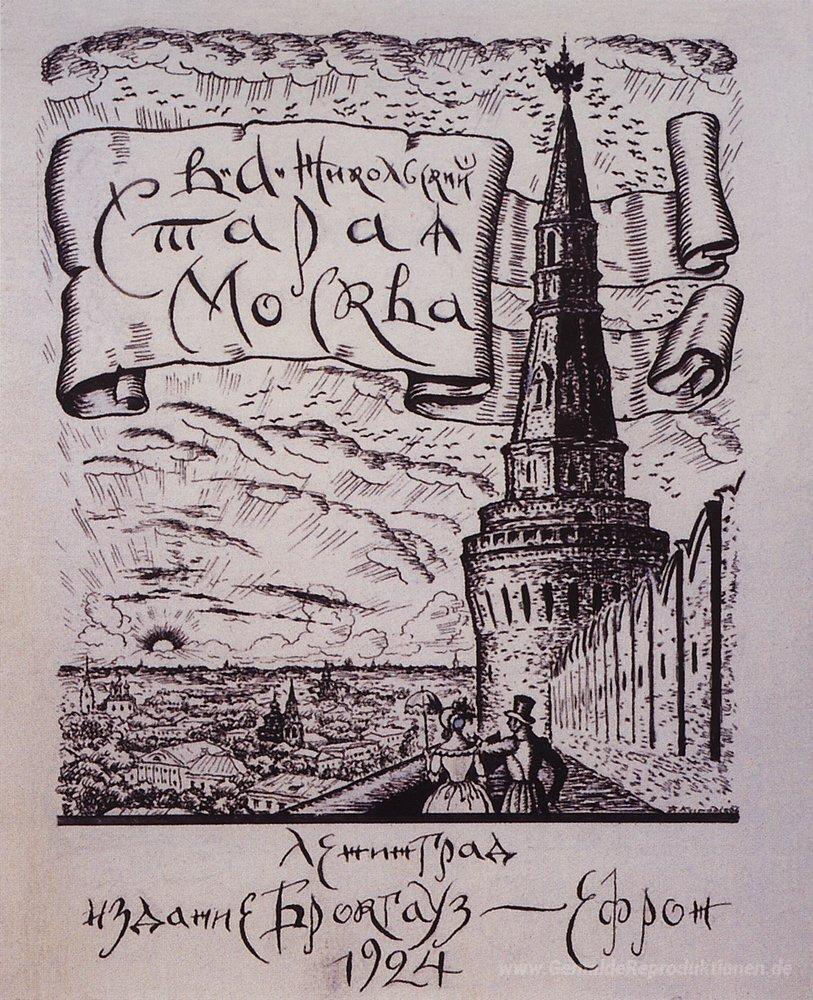 В. А. Никольский
Старая
Москва
Ленинград
издание Брокгауз — Ефрон
1924
www.GemaldeReproduktionen.de